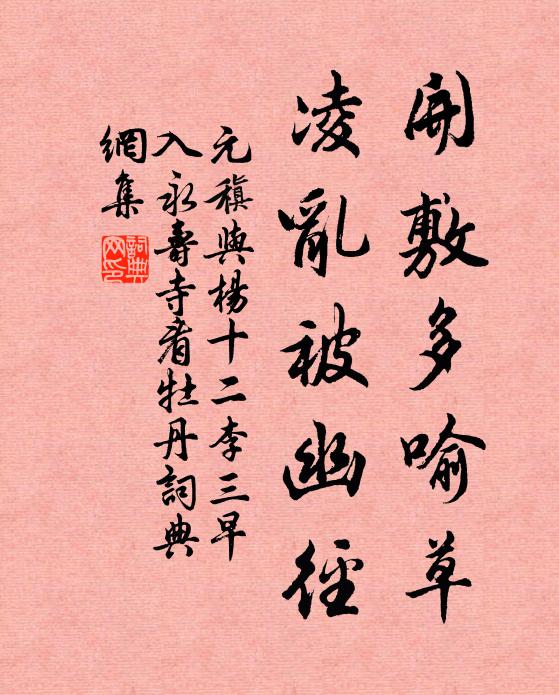 開敷多喻草
凌亂被幽徑
元稹與楊十二李三早
入永壽寺看牡丹詞典
網集
詞典
网印